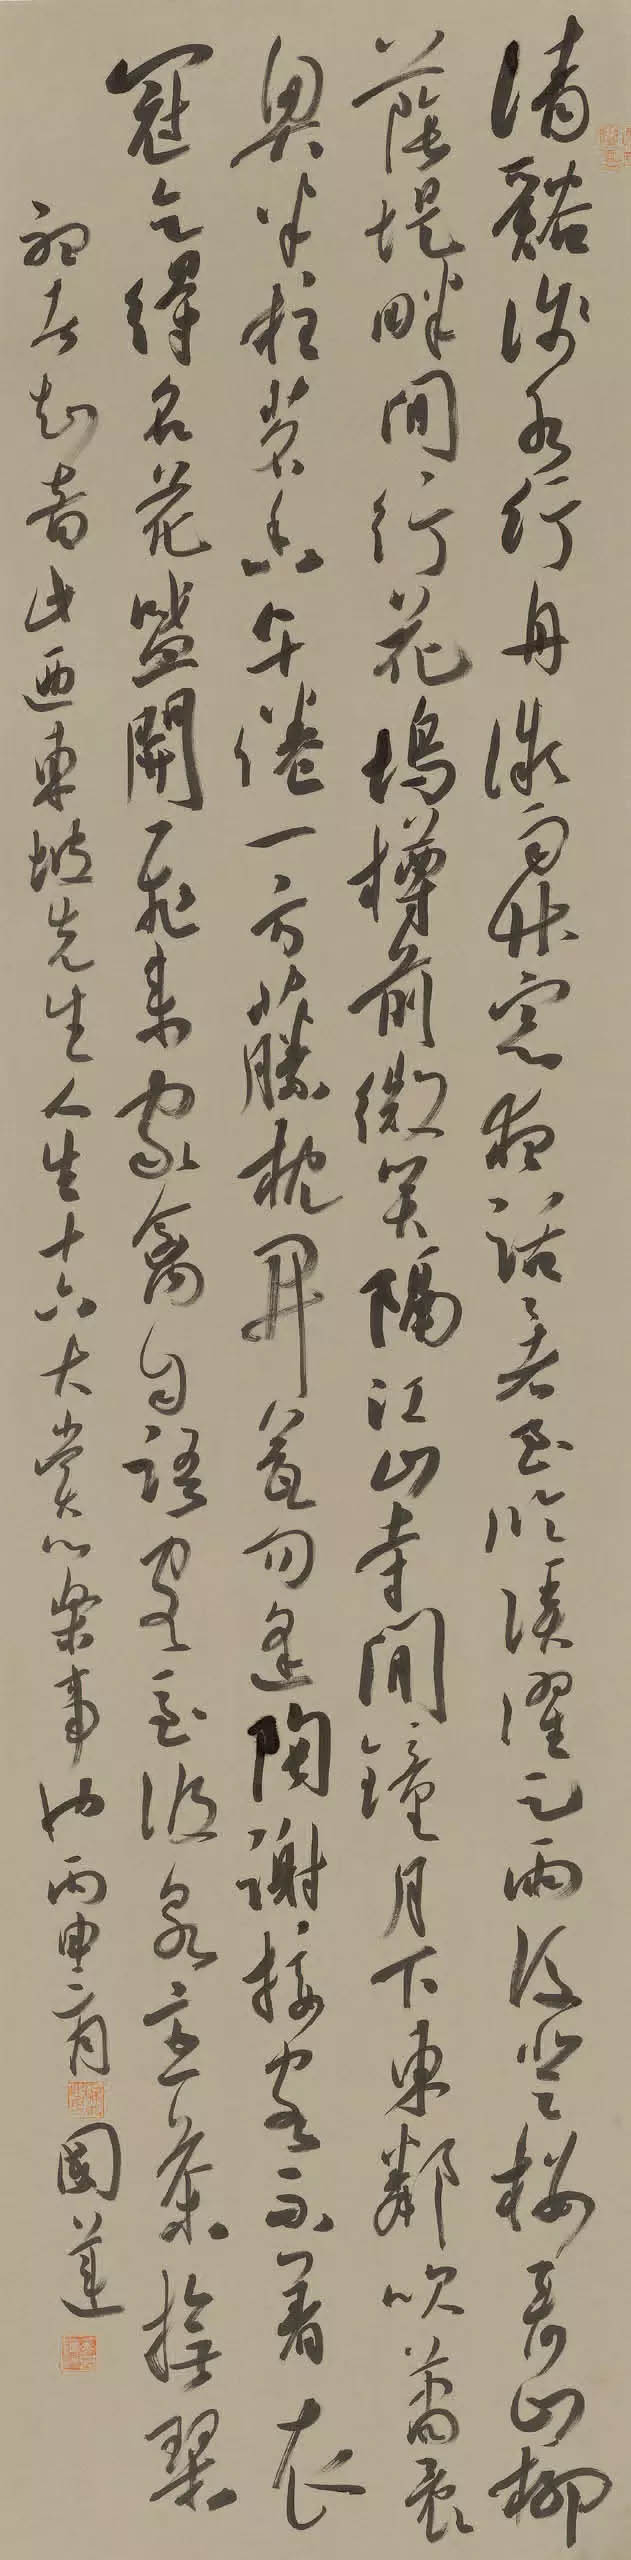 清谿淺水行舟微雨竹窗夜話暑至臨溪濯足雨後登樓看山柳
蔭堤畔閒行花塢樽前微笑隔江山寺聞鐘月下東鄰吹簫晨
興半炷茗香午倦一方藤枕開甕勿逢陶謝接客不著衣
冠乞得名花盛開飛來家禽自語客至汲泉烹茶撫琴
聽者知音此迺東坡先生人生十六大賞心樂事也丙申二月國蓮